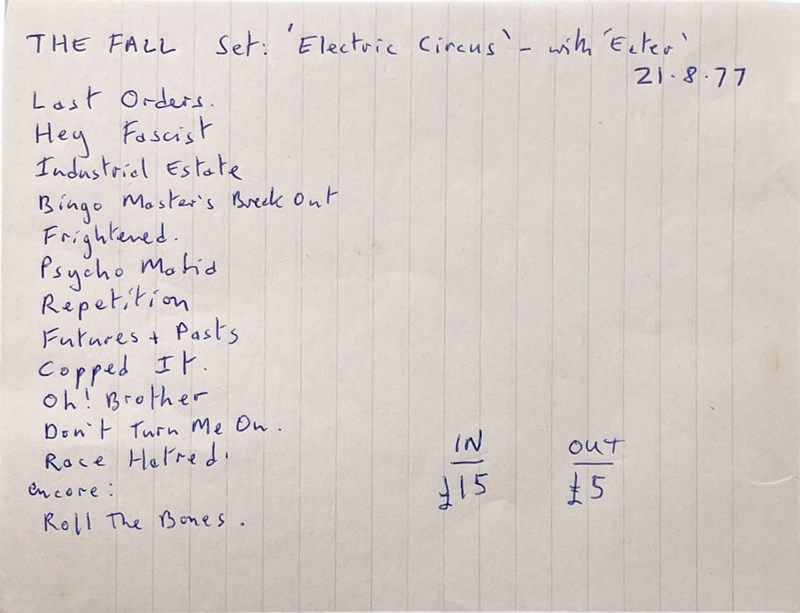 THE FALL Set: 'Electric Circus' - with 'Eater'
21.8.77
Last Orders.
Hey Fascist
Industrial Estate
Bingo Master's Break Out
Frightened.
Psycho Mafia
Repetition
Futures + Pasts
Copped It.
Oh! Brother
Don't Turn Me On.
Race Hatred.
encore:
Roll The Bones.
IN OUT
£15 £5